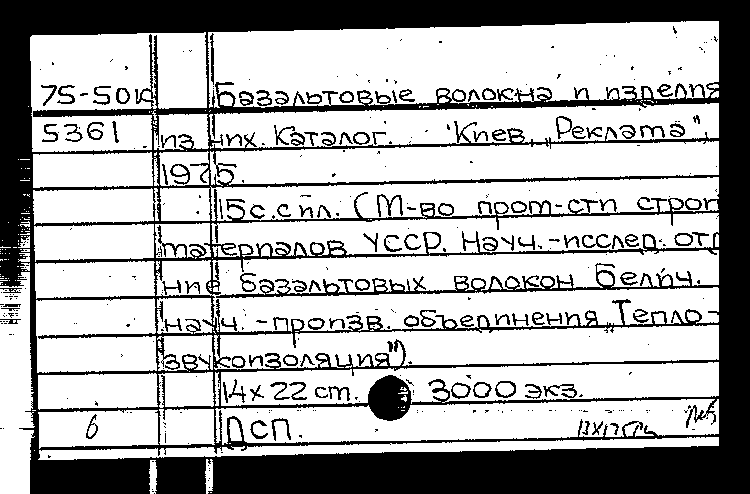 75-50к Базальтовые волокна и изделия
5361 из них. Каталог. Киев, „Реклама",
1975.
15с. с ил. (М-во пром-сти строи
материалов УССР. Науч.-исслед. отд
ние базальтовых волокон Белич.
науч.-произв. объединения „Тепло-
звукоизоляция").
14х22 cm. 3000 экз.
б ДСП.